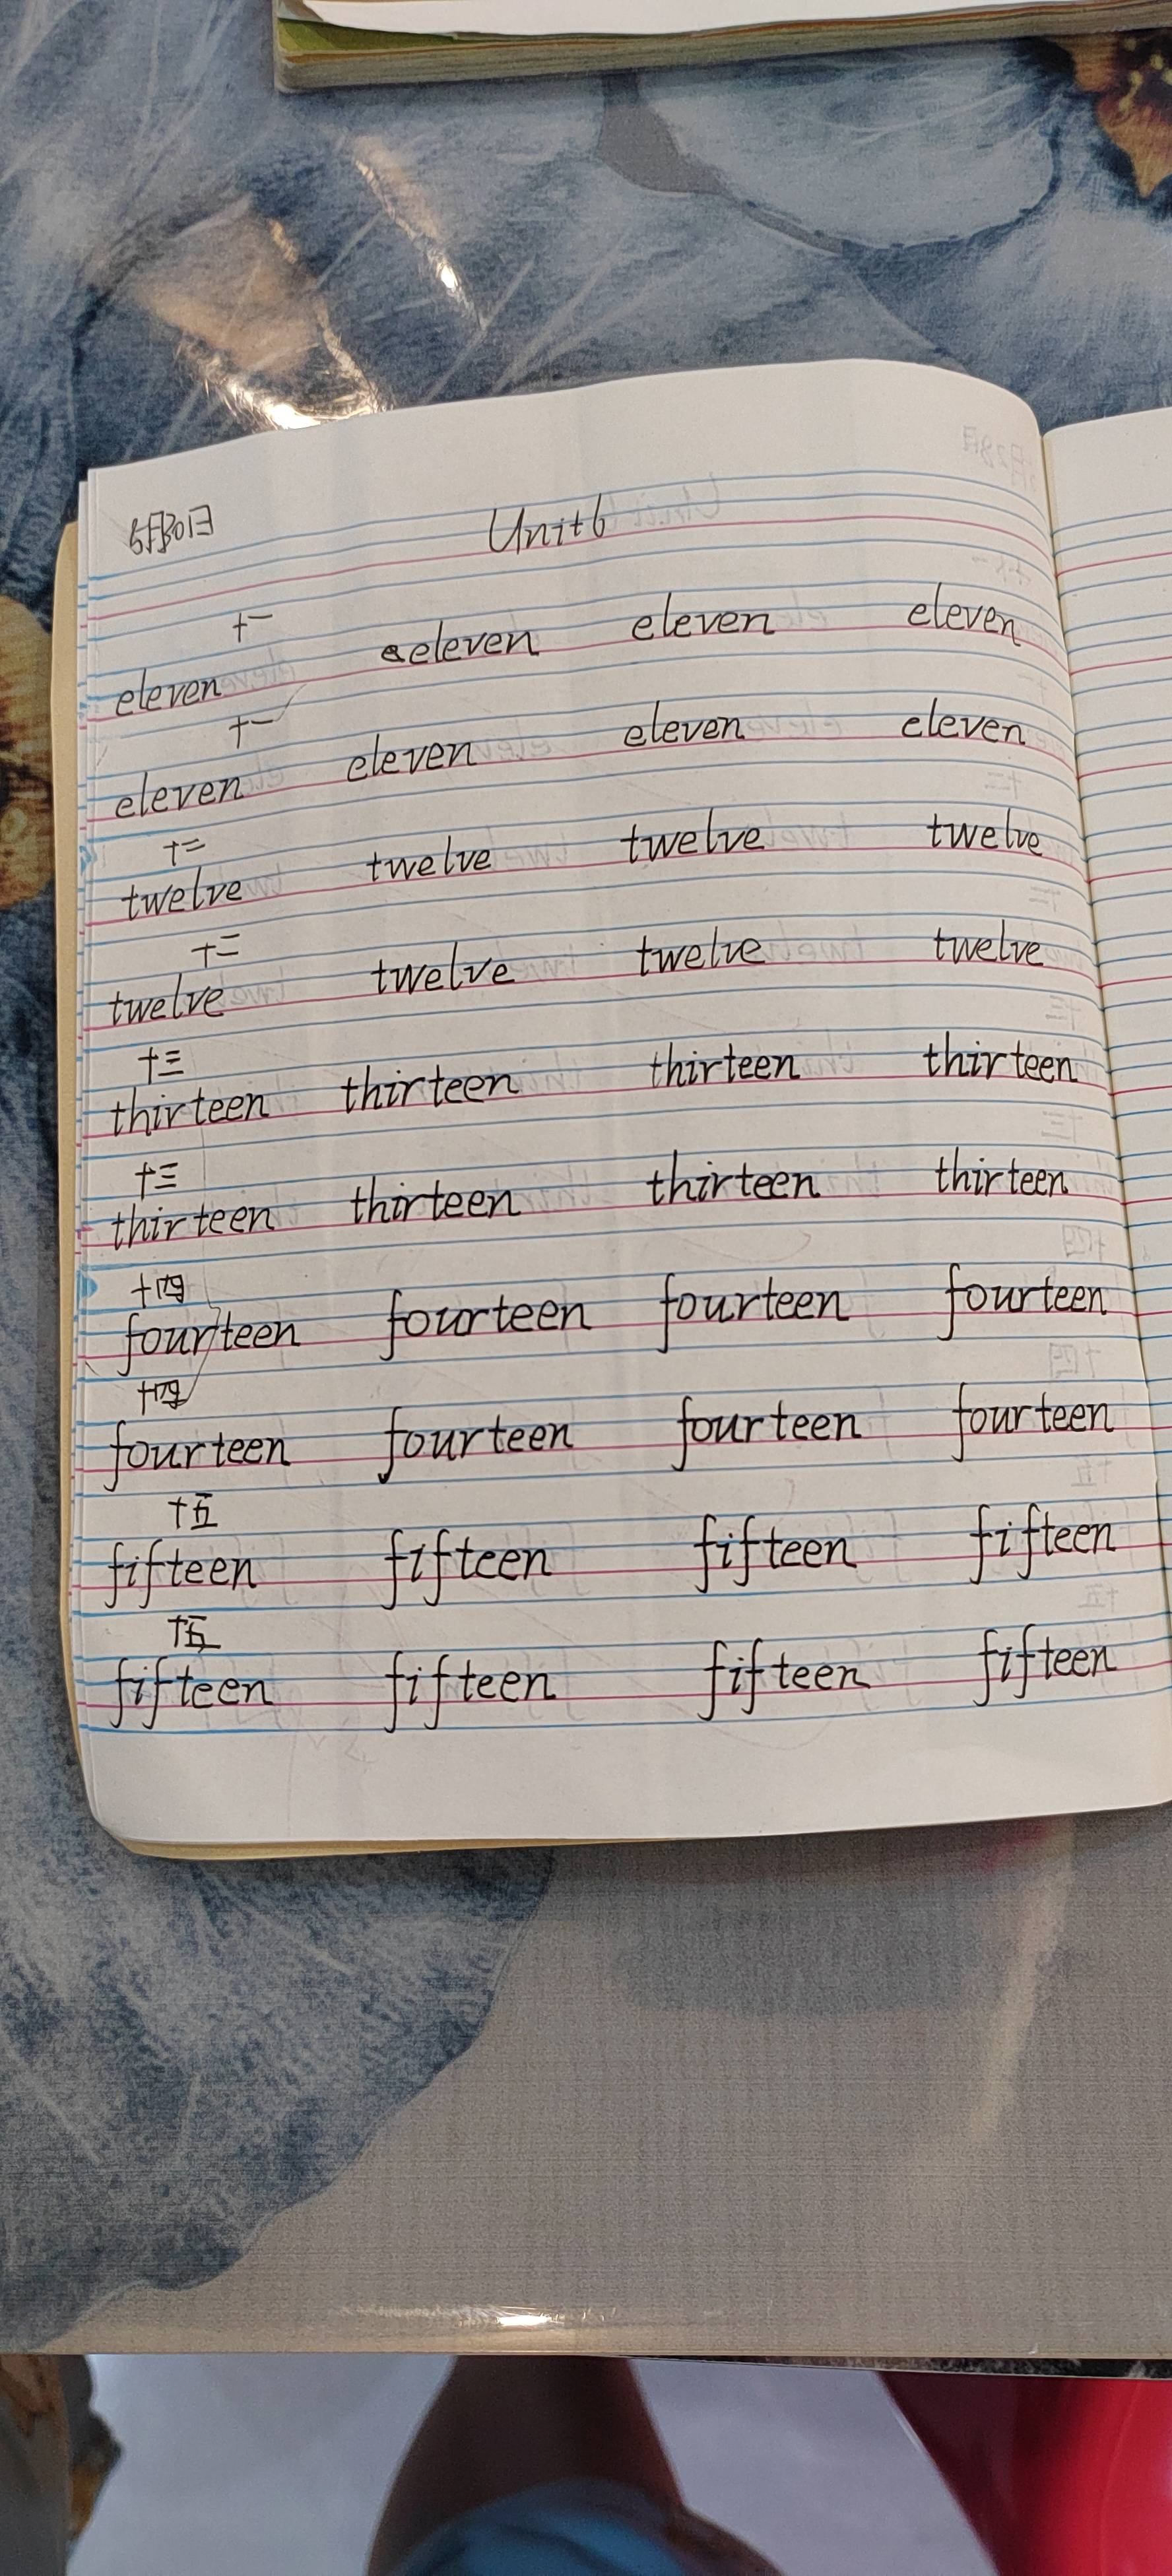 5月30日 Unit6
十一
eleven eleven eleven eleven
十一
eleven eleven eleven eleven
十二
twelve twelve twelve twelve
十二
twelve twelve twelve twelve
十三
thirteen thirteen thirteen thirteen
十三
thirteen thirteen thirteen thirteen
十四
fourteen fourteen fourteen fourteen
十四
fourteen fourteen fourteen fourteen
十五
fifteen fifteen fifteen fifteen
十五
fifteen fifteen fifteen fifteen